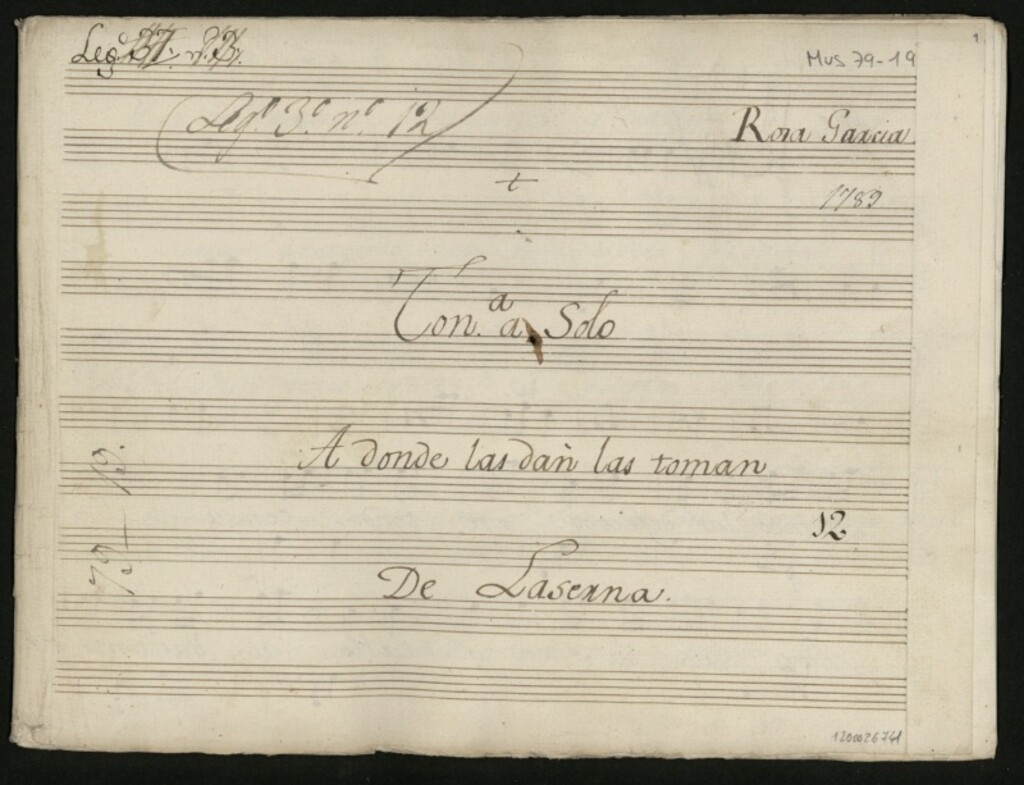 Leg.º 37. n.º 3.
Mus 79-19
1
Leg.º 3.º n.º 12
Rosa Garcia.
1789
Ton.ª a Solo
A donde las dan las toman
79-19.
12
De Laserna.
1200026741